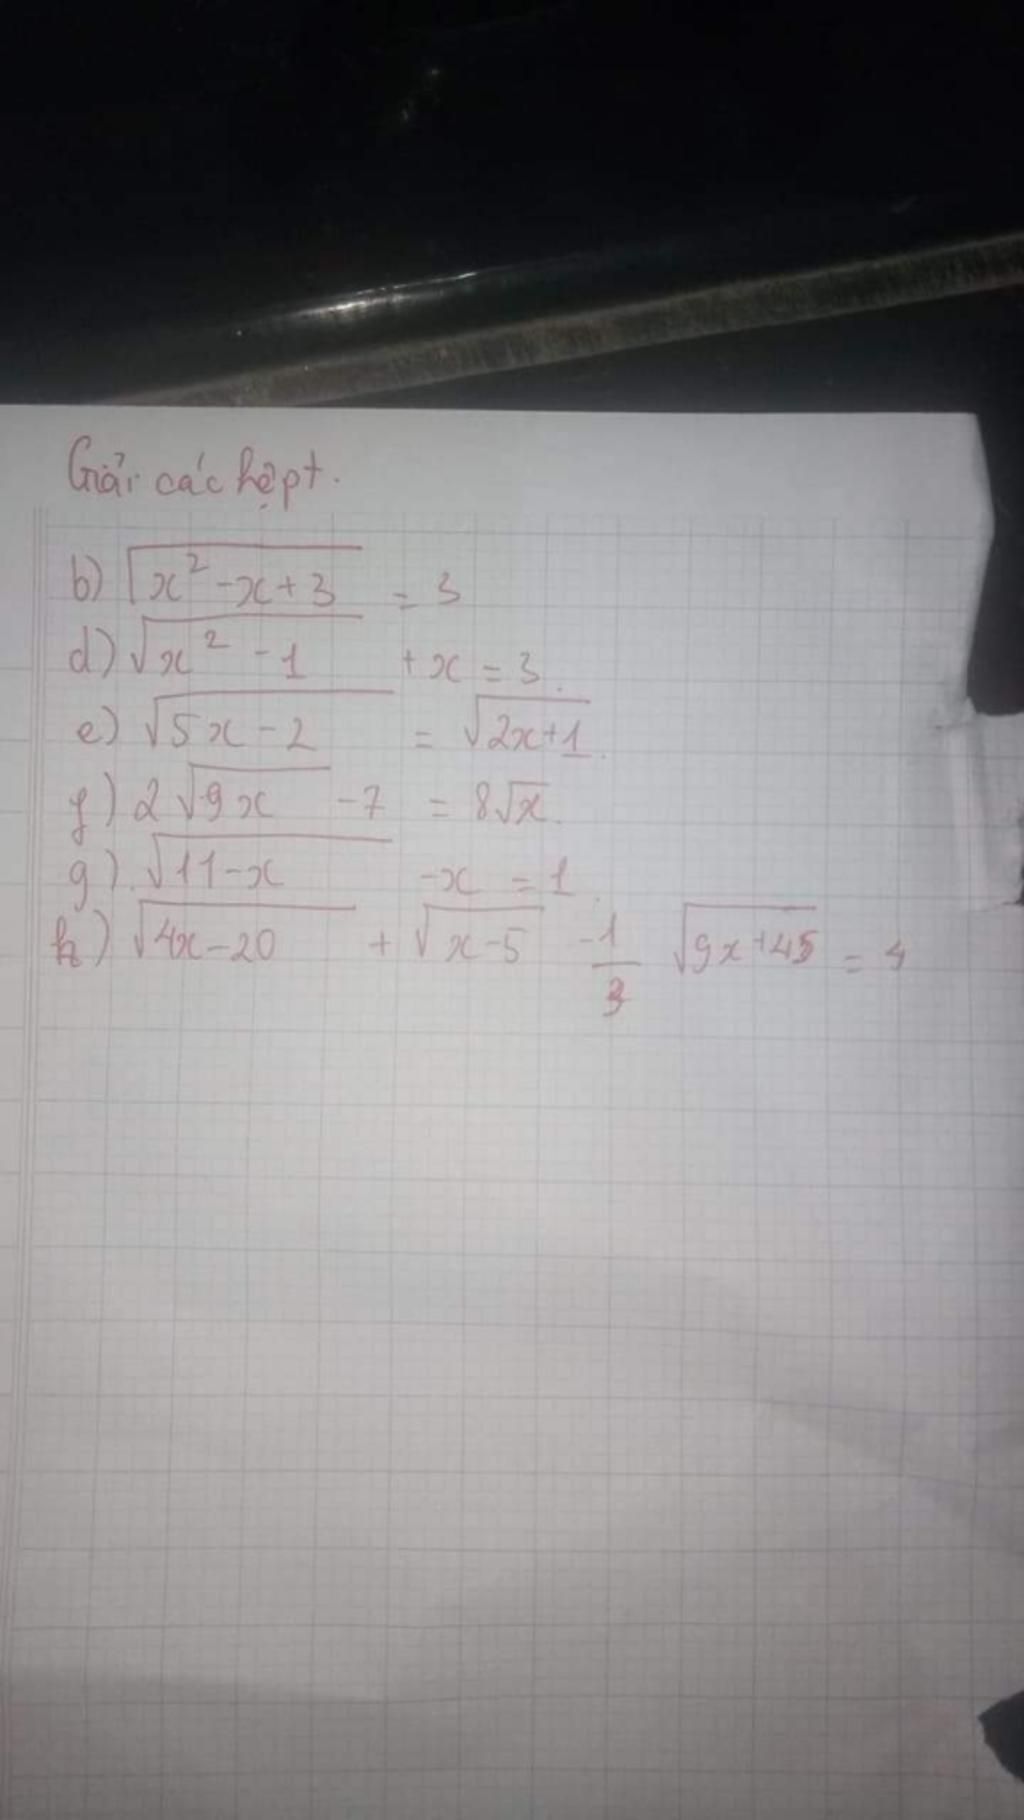 Giải các hệ pt.
b) √x² - x + 3 = 3
d) √x² - 1 + x = 3.
e) √5x - 2 = √2x+1.
f) 2√9x - 7 = 8√x.
g). √11 - x - x = 1.
h) √4x - 20 + √x - 5 - 1/3 √9x + 45 = 4